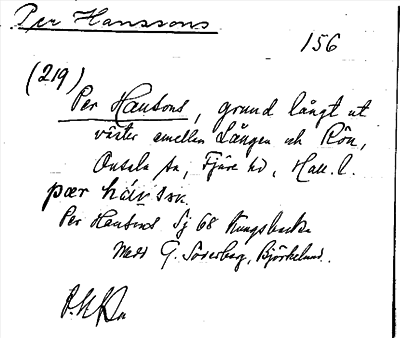 Per Hanssons
156
(219)
Per Hansons, grund långt ut
väster emellan Lången och Rön,
Onsala sn, Fjäre hd, Hall. l.
pær hánsɔn
Per Hansons Sj 68 Kungsbacka
Medd G. Söderberg, Björkelund.